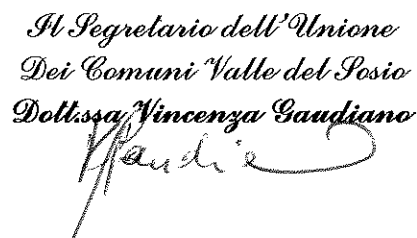 Il Segretario dell'Unione
Dei Comuni Valle del Sosio
Dott.ssa Vincenza Gaudiano